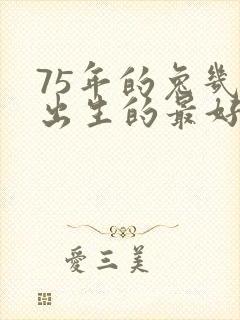 75年的兔幾
出生的最好
愛三美